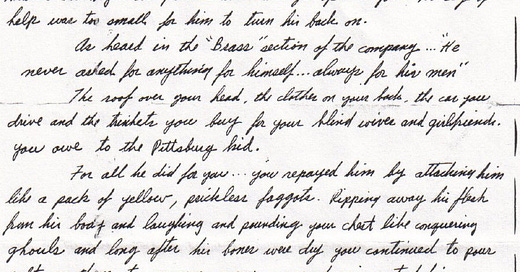 help was too small for him to turn his back on.
As heard in the "Brass" section of the company... "He
never asked for anything for himself... always for his men"
The roof over your head, the clothes on your back, the car you
drive and the trinkets you buy for your blind wives and girlfriends.
you owe to the Pittsburg kid.
For all he did for you... you repayed him by attacking him
like a pack of yellow, prickless faggots. Ripping away his flesh
from his body and laughing and pounding your chest like conquering
ghouls and long after his bones were dry you continued to pour